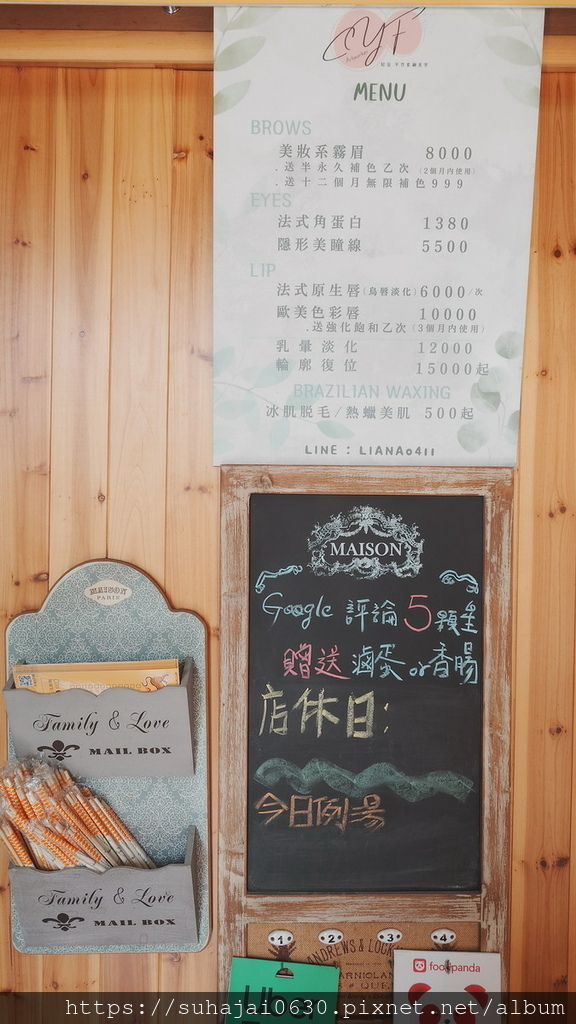 CYF
MENU
BROWS
美妝系霧眉 8000
.送半永久補色乙次 (2個月內使用)
.送十二個月無限補色999
EYES
法式角蛋白 1380
隱形美瞳線 5500
LIP
法式原生唇(烏唇淡化) 6000/次
歐美色彩唇 10000
.送強化飽和乙次 (3個月內使用)
乳暈淡化 12000
輪廓復位 15000起
BRAZILIAN WAXING
冰肌脫毛/熱蠟美肌 500起
LINE : LIANA0411
MAISON
Google 評論5顆星
贈送 滷蛋or香腸
店休日:
今日例湯
MAISON
PARIS
Family & Love
MAIL BOX
Family & Love
MAIL BOX
1 2 3 4
ANDREWS &
Uber
foodpanda
https://suhajai0630.pixnet.net/album